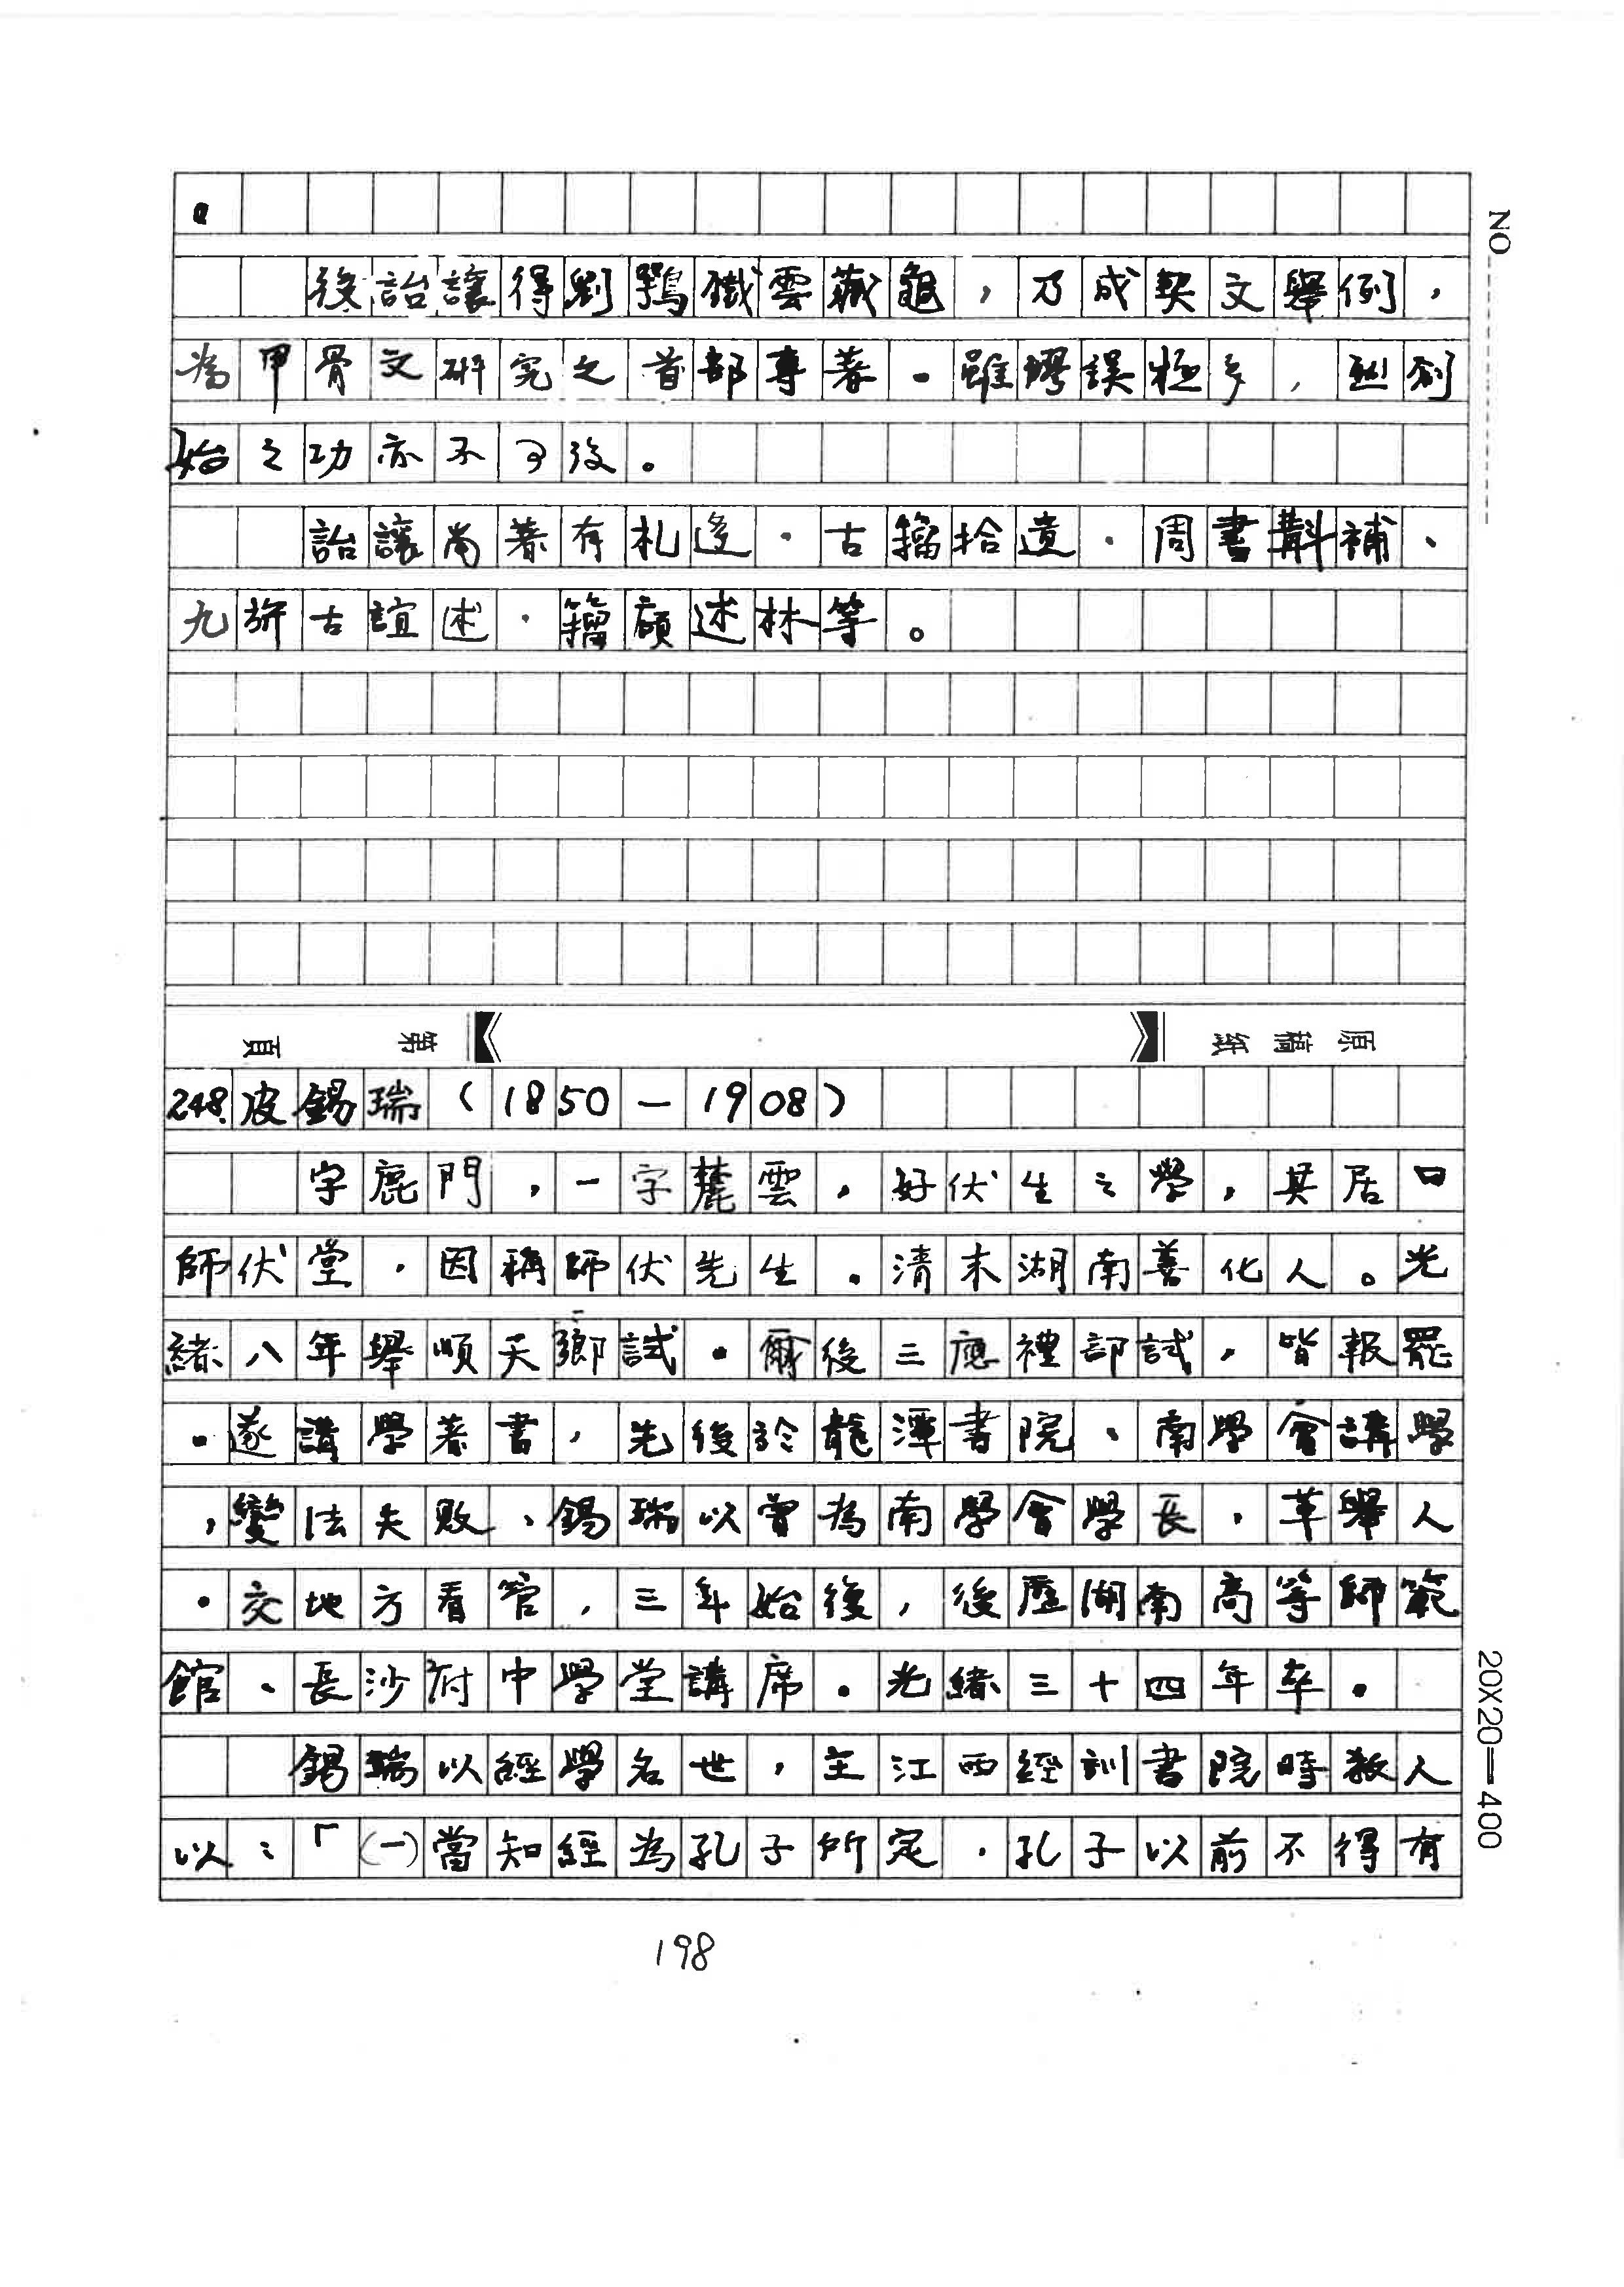 。
後詒讓得劉鶚鐵雲藏龜，乃成契文舉例，
為甲骨文研究之首部專著。雖謬誤極多，然創
始之功亦不可沒。
詒讓尚著有札迻、古籀拾遺、周書斠補、
九旂古誼述、籀廎述林等。
原稿紙 第 頁
248.皮錫瑞（1850－1908）
字鹿門，一字麓雲，好伏生之學，其居曰
師伏堂，因稱師伏先生。清末湖南善化人。光
緒八年舉順天鄉試。爾後三應禮部試，皆報罷
。遂講學著書，先後於龍潭書院、南學會講學
，變法失敗、錫瑞以曾為南學會學長，革舉人
。交地方看管，三年始復，後歷湖南高等師範
館、長沙府中學堂講席。光緒三十四年卒。
錫瑞以經學名世，主江西經訓書院時教人
以：「(一)當知經為孔子所定，孔子以前不得有
198
NO
20X20=400